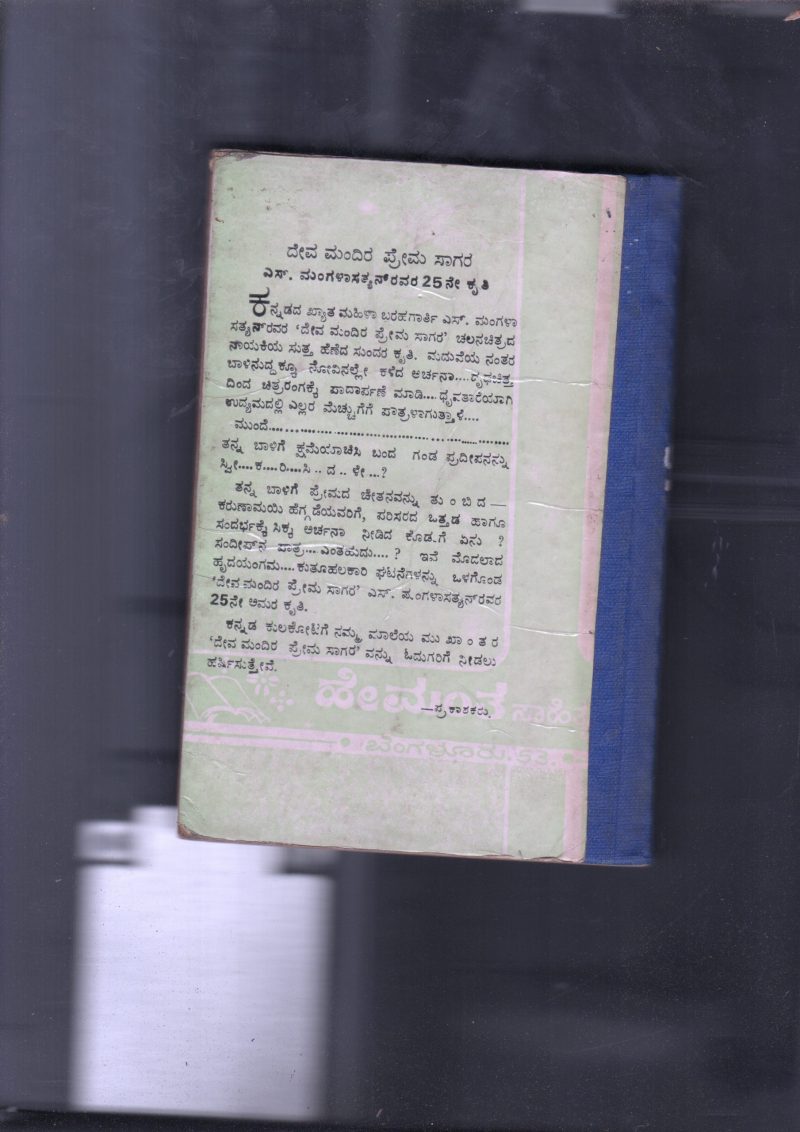 ದೇವ ಮಂದಿರ ಪ್ರೇಮ ಸಾಗರ
ಎಸ್. ಮಂಗಳಾಸತ್ಯನ್‌ರವರ 25ನೇ ಕೃತಿ
ಕನ್ನಡದ ಖ್ಯಾತ ಮಹಿಳಾ ಬರಹಗಾರ್ತಿ ಎಸ್. ಮಂಗಳಾ
ಸತ್ಯನ್‌ರವರ 'ದೇವ ಮಂದಿರ ಪ್ರೇಮ ಸಾಗರ' ಚಲನಚಿತ್ರದ
ನಾಯಕಿಯ ಸುತ್ತ ಹೆಣೆದ ಸುಂದರ ಕೃತಿ. ಮದುವೆಯ ನಂತರ
ಬಾಳಿನುದ್ದಕ್ಕೂ ನೋವಿನಲ್ಲೇ ಕಳೆದ ಅರ್ಚನಾ.... ದೃಢಚಿತ್ತ
ದಿಂದ ಚಿತ್ರರಂಗಕ್ಕೆ ಪಾದಾರ್ಪಣೆ ಮಾಡಿ.... ಧೃವತಾರೆಯಾಗಿ
ಉದ್ಯಮದಲ್ಲಿ ಎಲ್ಲರ ಮೆಚ್ಚುಗೆಗೆ ಪಾತ್ರಳಾಗುತ್ತಾಳೆ....
ಮುಂದೆ..........................................................
ತನ್ನ ಬಾಳಿಗೆ ಕ್ಷಮೆಯಾಚಿಸಿ ಬಂದ ಗಂಡ ಪ್ರದೀಪನನ್ನು
ಸ್ವೀ....ಕ....ರಿ....ಸಿ .. ದ .. ಳೇ ...?
ತನ್ನ ಬಾಳಿಗೆ ಪ್ರೇಮದ ಚೇತನವನ್ನು ತು ಂ ಬಿ ದ —
ಕರುಣಾಮಯಿ ಹೆಗ್ಗಡೆಯವರಿಗೆ, ಪರಿಸರದ ಒತ್ತಡ ಹಾಗೂ
ಸಂದರ್ಭಕ್ಕೆ ಸಿಕ್ಕ ಅರ್ಚನಾ ನೀಡಿದ ಕೊಡುಗೆ ಏನು ?
ಸಂದೀಪ್‌ನ ಪಾತ್ರ.... ಎಂತಹುದು.... ? ಇವೆ ಮೊದಲಾದ
ಹೃದಯಂಗಮ.... ಕುತೂಹಲಕಾರಿ ಘಟನೆಗಳನ್ನು ಒಳಗೊಂಡ
'ದೇವ ಮಂದಿರ ಪ್ರೇಮ ಸಾಗರ' ಎಸ್. ಮಂಗಳಾಸತ್ಯನ್‌ರವರ
25ನೇ ಅಮರ ಕೃತಿ.
ಕನ್ನಡ ಕುಲಕೋಟಿಗೆ ನಮ್ಮ ಮಾಲೆಯ ಮು ಖಾ ಂ ತ ರ
'ದೇವ ಮಂದಿರ ಪ್ರೇಮ ಸಾಗರ' ವನ್ನು ಓದುಗರಿಗೆ ನೀಡಲು
ಹರ್ಷಿಸುತ್ತೇವೆ.
—ಪ್ರಕಾಶಕರು.
ಹೇಮಂತ ಸಾಹಿ
ಬೆಂಗಳೂರು. 53.